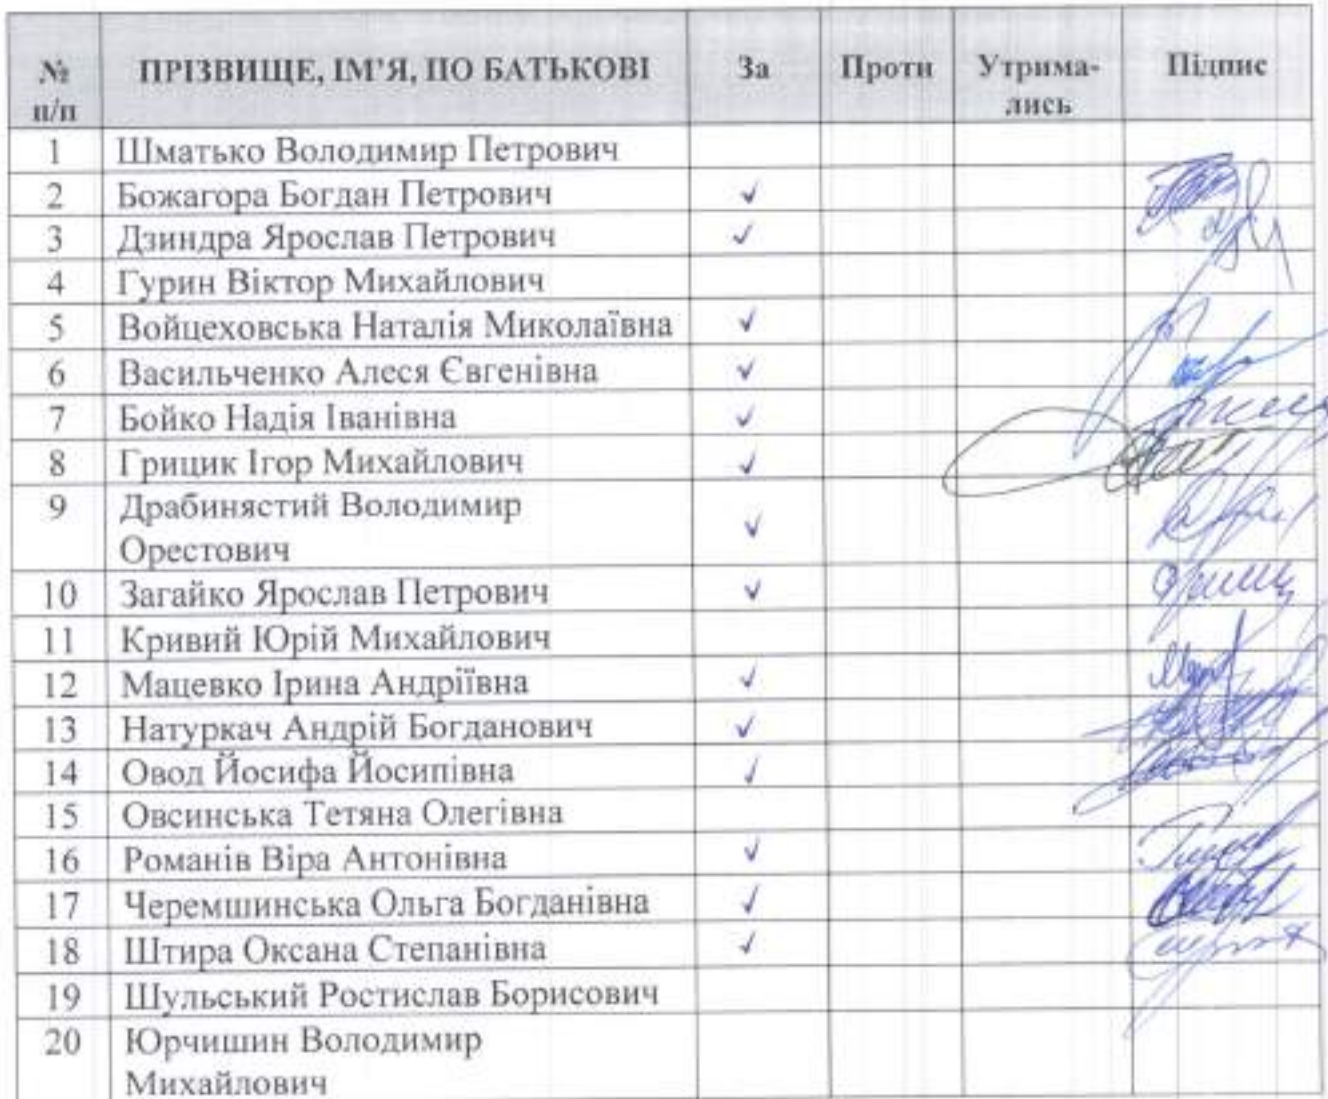 № п/п ПРІЗВИЩЕ, ІМ'Я, ПО БАТЬКОВІ За Проти Утрима-лись Підпис
1 Шматько Володимир Петрович
2 Божагора Богдан Петрович ✓
3 Дзиндра Ярослав Петрович ✓
4 Гурин Віктор Михайлович
5 Войцеховська Наталія Миколаївна ✓
6 Васильченко Алеся Євгенівна ✓
7 Бойко Надія Іванівна ✓
8 Грицик Ігор Михайлович ✓
9 Драбинястий Володимир
Орестович ✓
10 Загайко Ярослав Петрович ✓
11 Кривий Юрій Михайлович
12 Мацевко Ірина Андріївна ✓
13 Натуркач Андрій Богданович ✓
14 Овод Йосифа Йосипівна ✓
15 Овсинська Тетяна Олегівна
16 Романів Віра Антонівна ✓
17 Черемшинська Ольга Богданівна ✓
18 Штира Оксана Степанівна ✓
19 Шульський Ростислав Борисович
20 Юрчишин Володимир
Михайлович